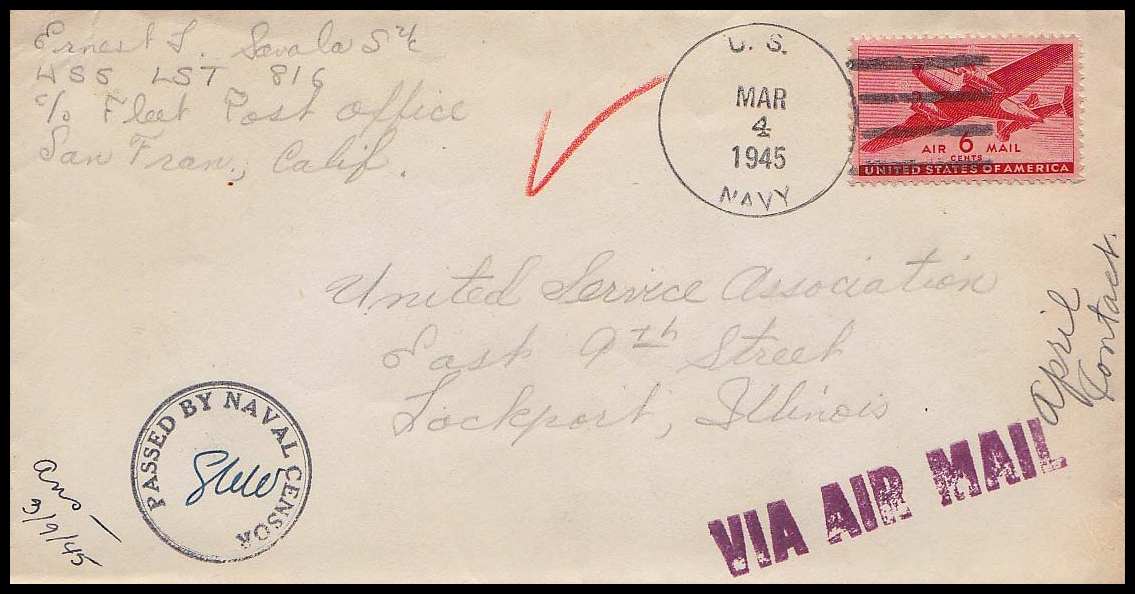 Ernest L. Savala S 2/c
USS LST 816
c/o Fleet Post Office
San Fran., Calif.
U. S.
MAR
4
1945
NAVY
AIR 6 MAIL
CENTS
UNITED STATES OF AMERICA
United Service Association
East 9th Street
Lockport, Illinois
April
Contact.
PASSED BY NAVAL CENSOR
Ans —
3/9/45
VIA AIR MAIL